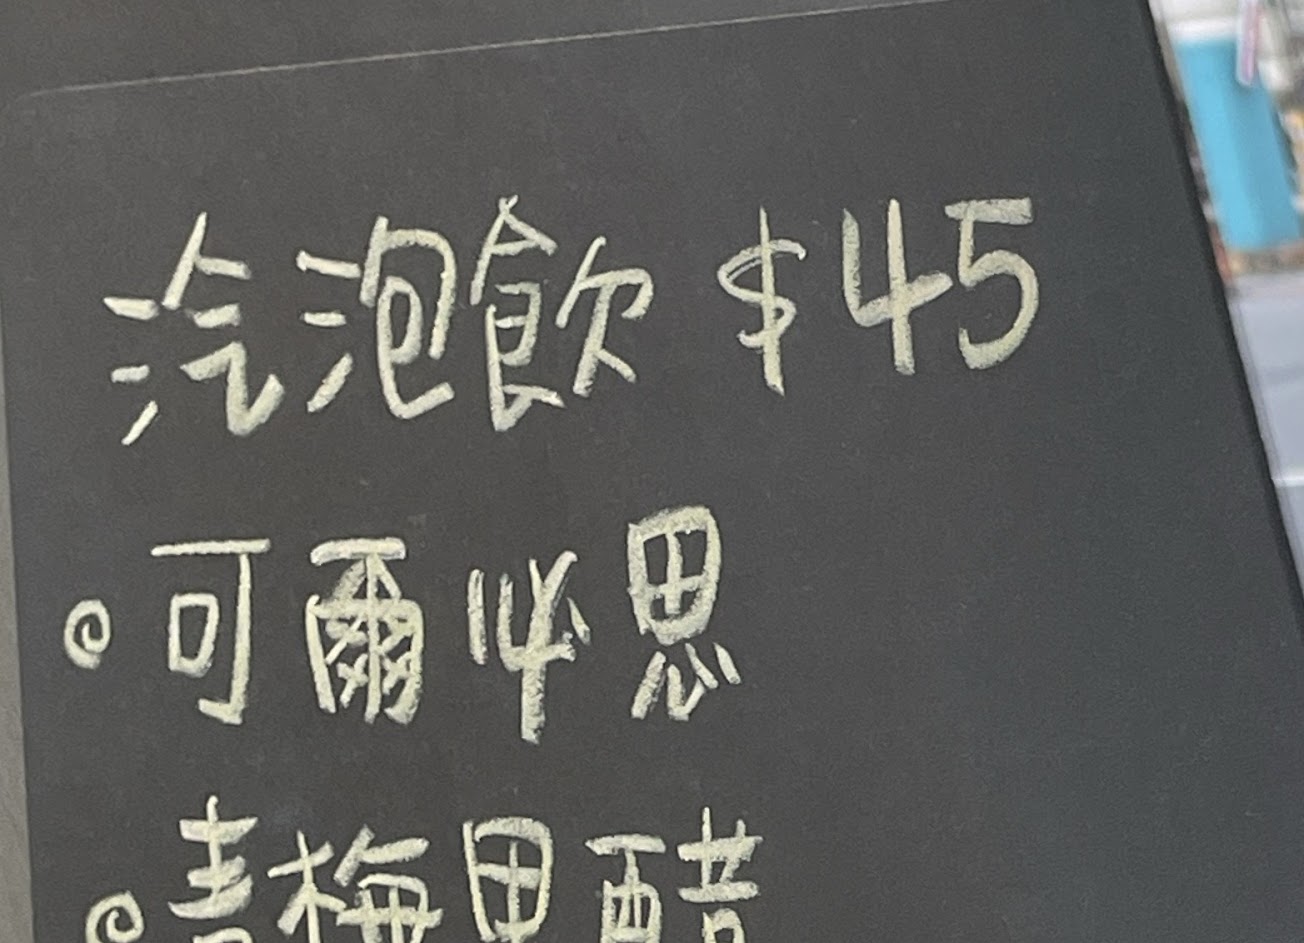 汽泡飲 $45
可爾必思
青梅果醋